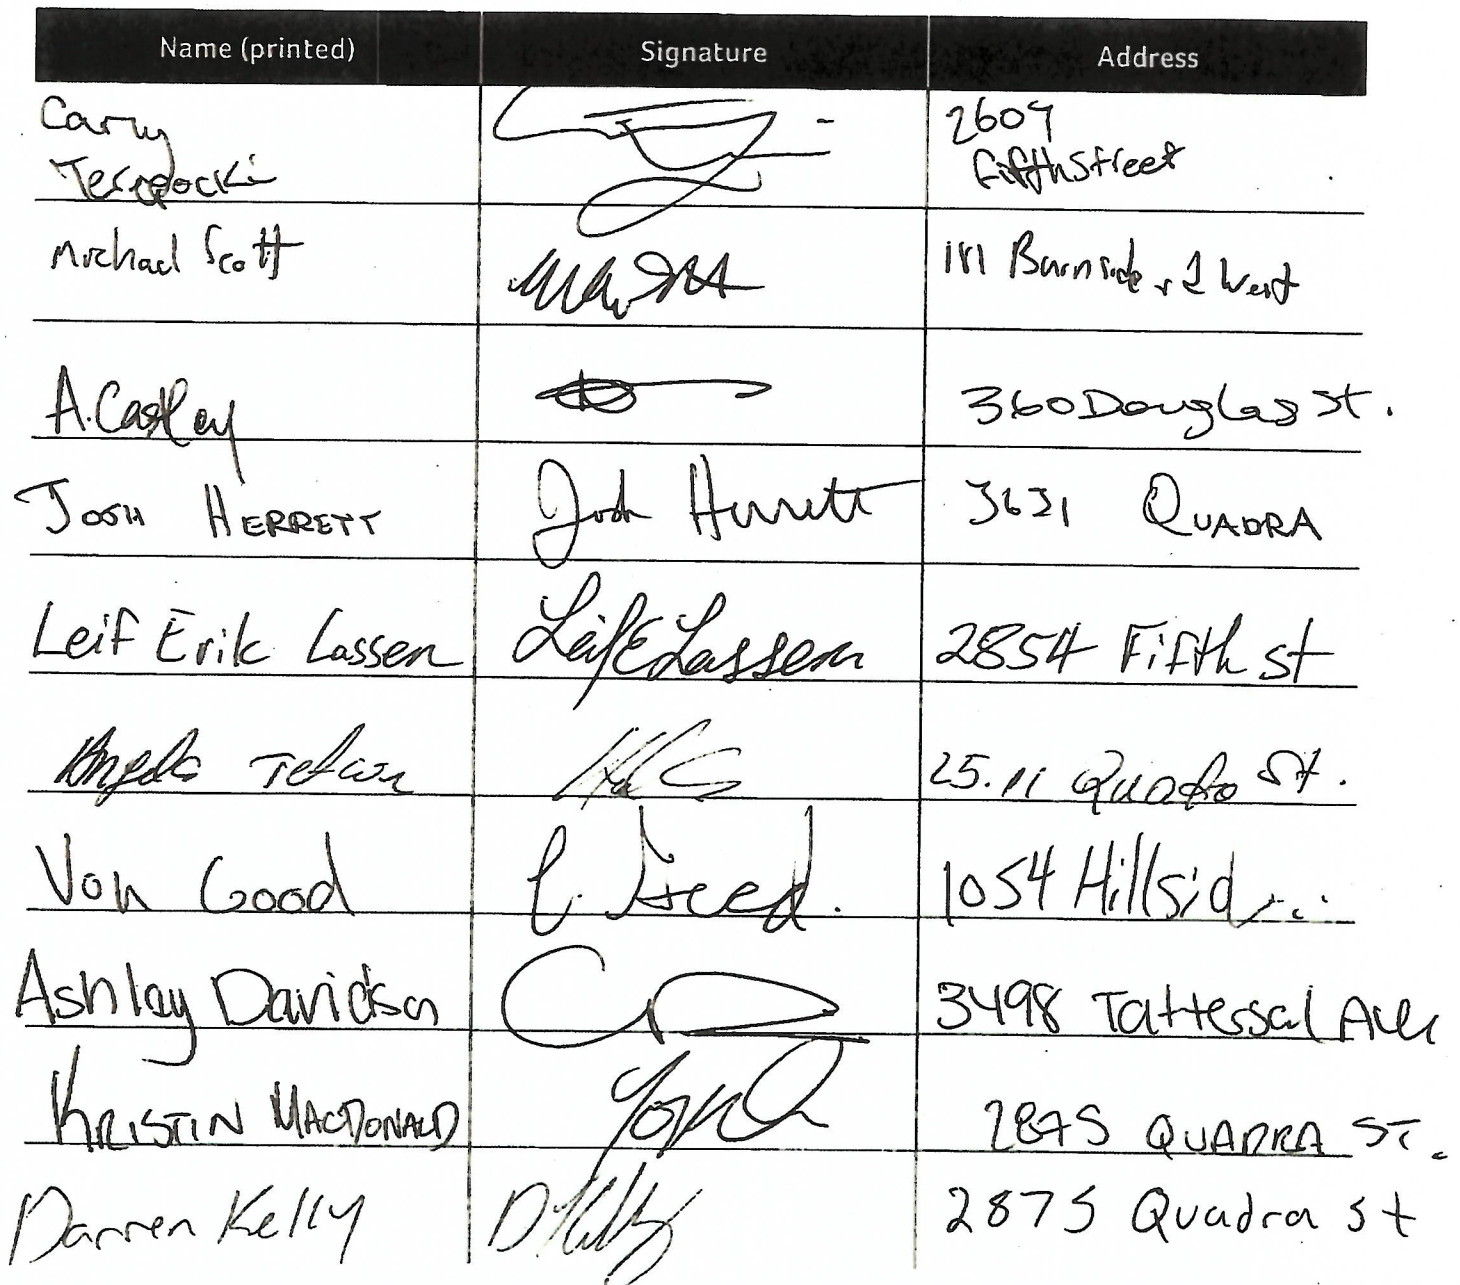 Name (printed) Signature Address
2609
Fifth Street
Michael Scott 1111 Burnside West
A. Castley 360 Douglas St.
JOSH HERRETT Josh Herrett 3631 QUADRA
Leif Erik Lassen Leif E Lassen 2854 Fifth st
Angela 25.11 Quadra St.
Von Good Good. 1054 Hillsid
Ashley Davidson 3498 Tattersal Ave
KRISTIN MACDONALD 2875 QUADRA ST.
Darren Kelly D Kelly 2875 Quadra st